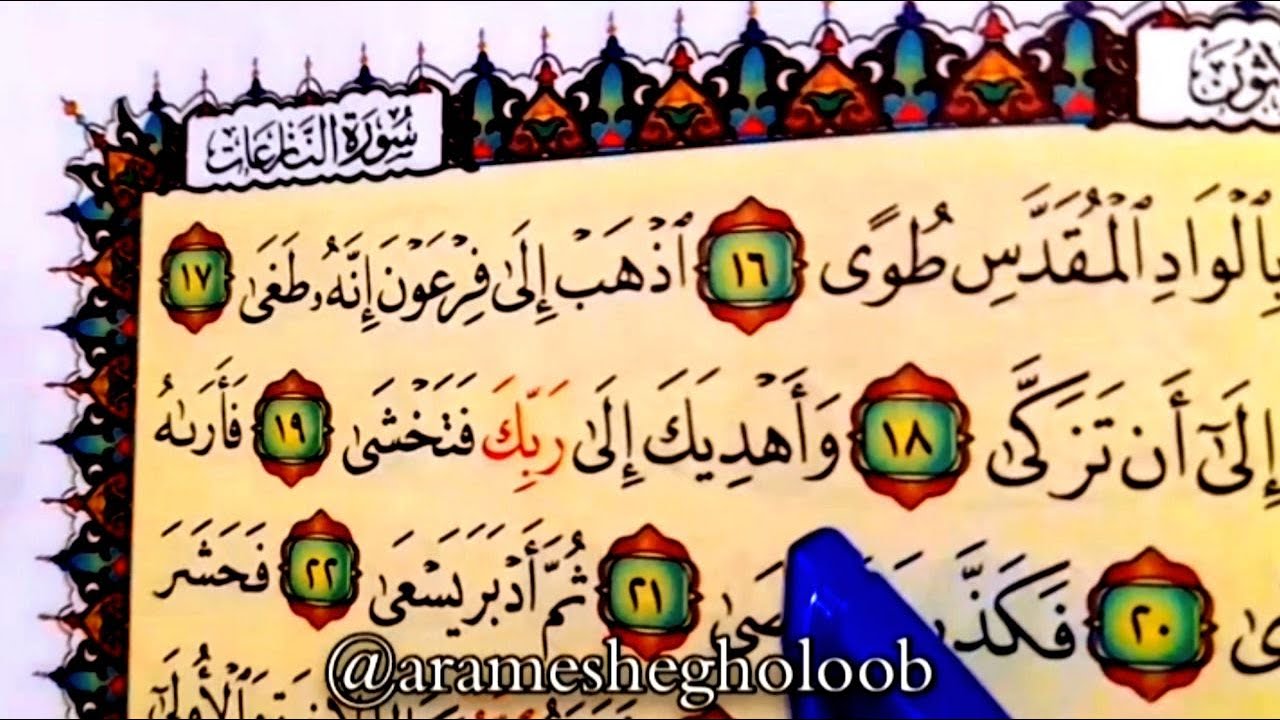 سُورَةُ النَّازِعَاتِ
بِالْوَادِ الْمُقَدَّسِ طُوًى ١٦ ٱذْهَبْ إِلَىٰ فِرْعَوْنَ إِنَّهُۥ طَغَىٰ ١٧
إِلَىٰٓ أَن تَزَكَّىٰ ١٨ وَأَهْدِيَكَ إِلَىٰ رَبِّكَ فَتَخْشَىٰ ١٩ فَأَرَىٰهُ
٢٠ ٢١ ثُمَّ أَدْبَرَ يَسْعَىٰ ٢٢ فَحَشَرَ
@arameshegholoob